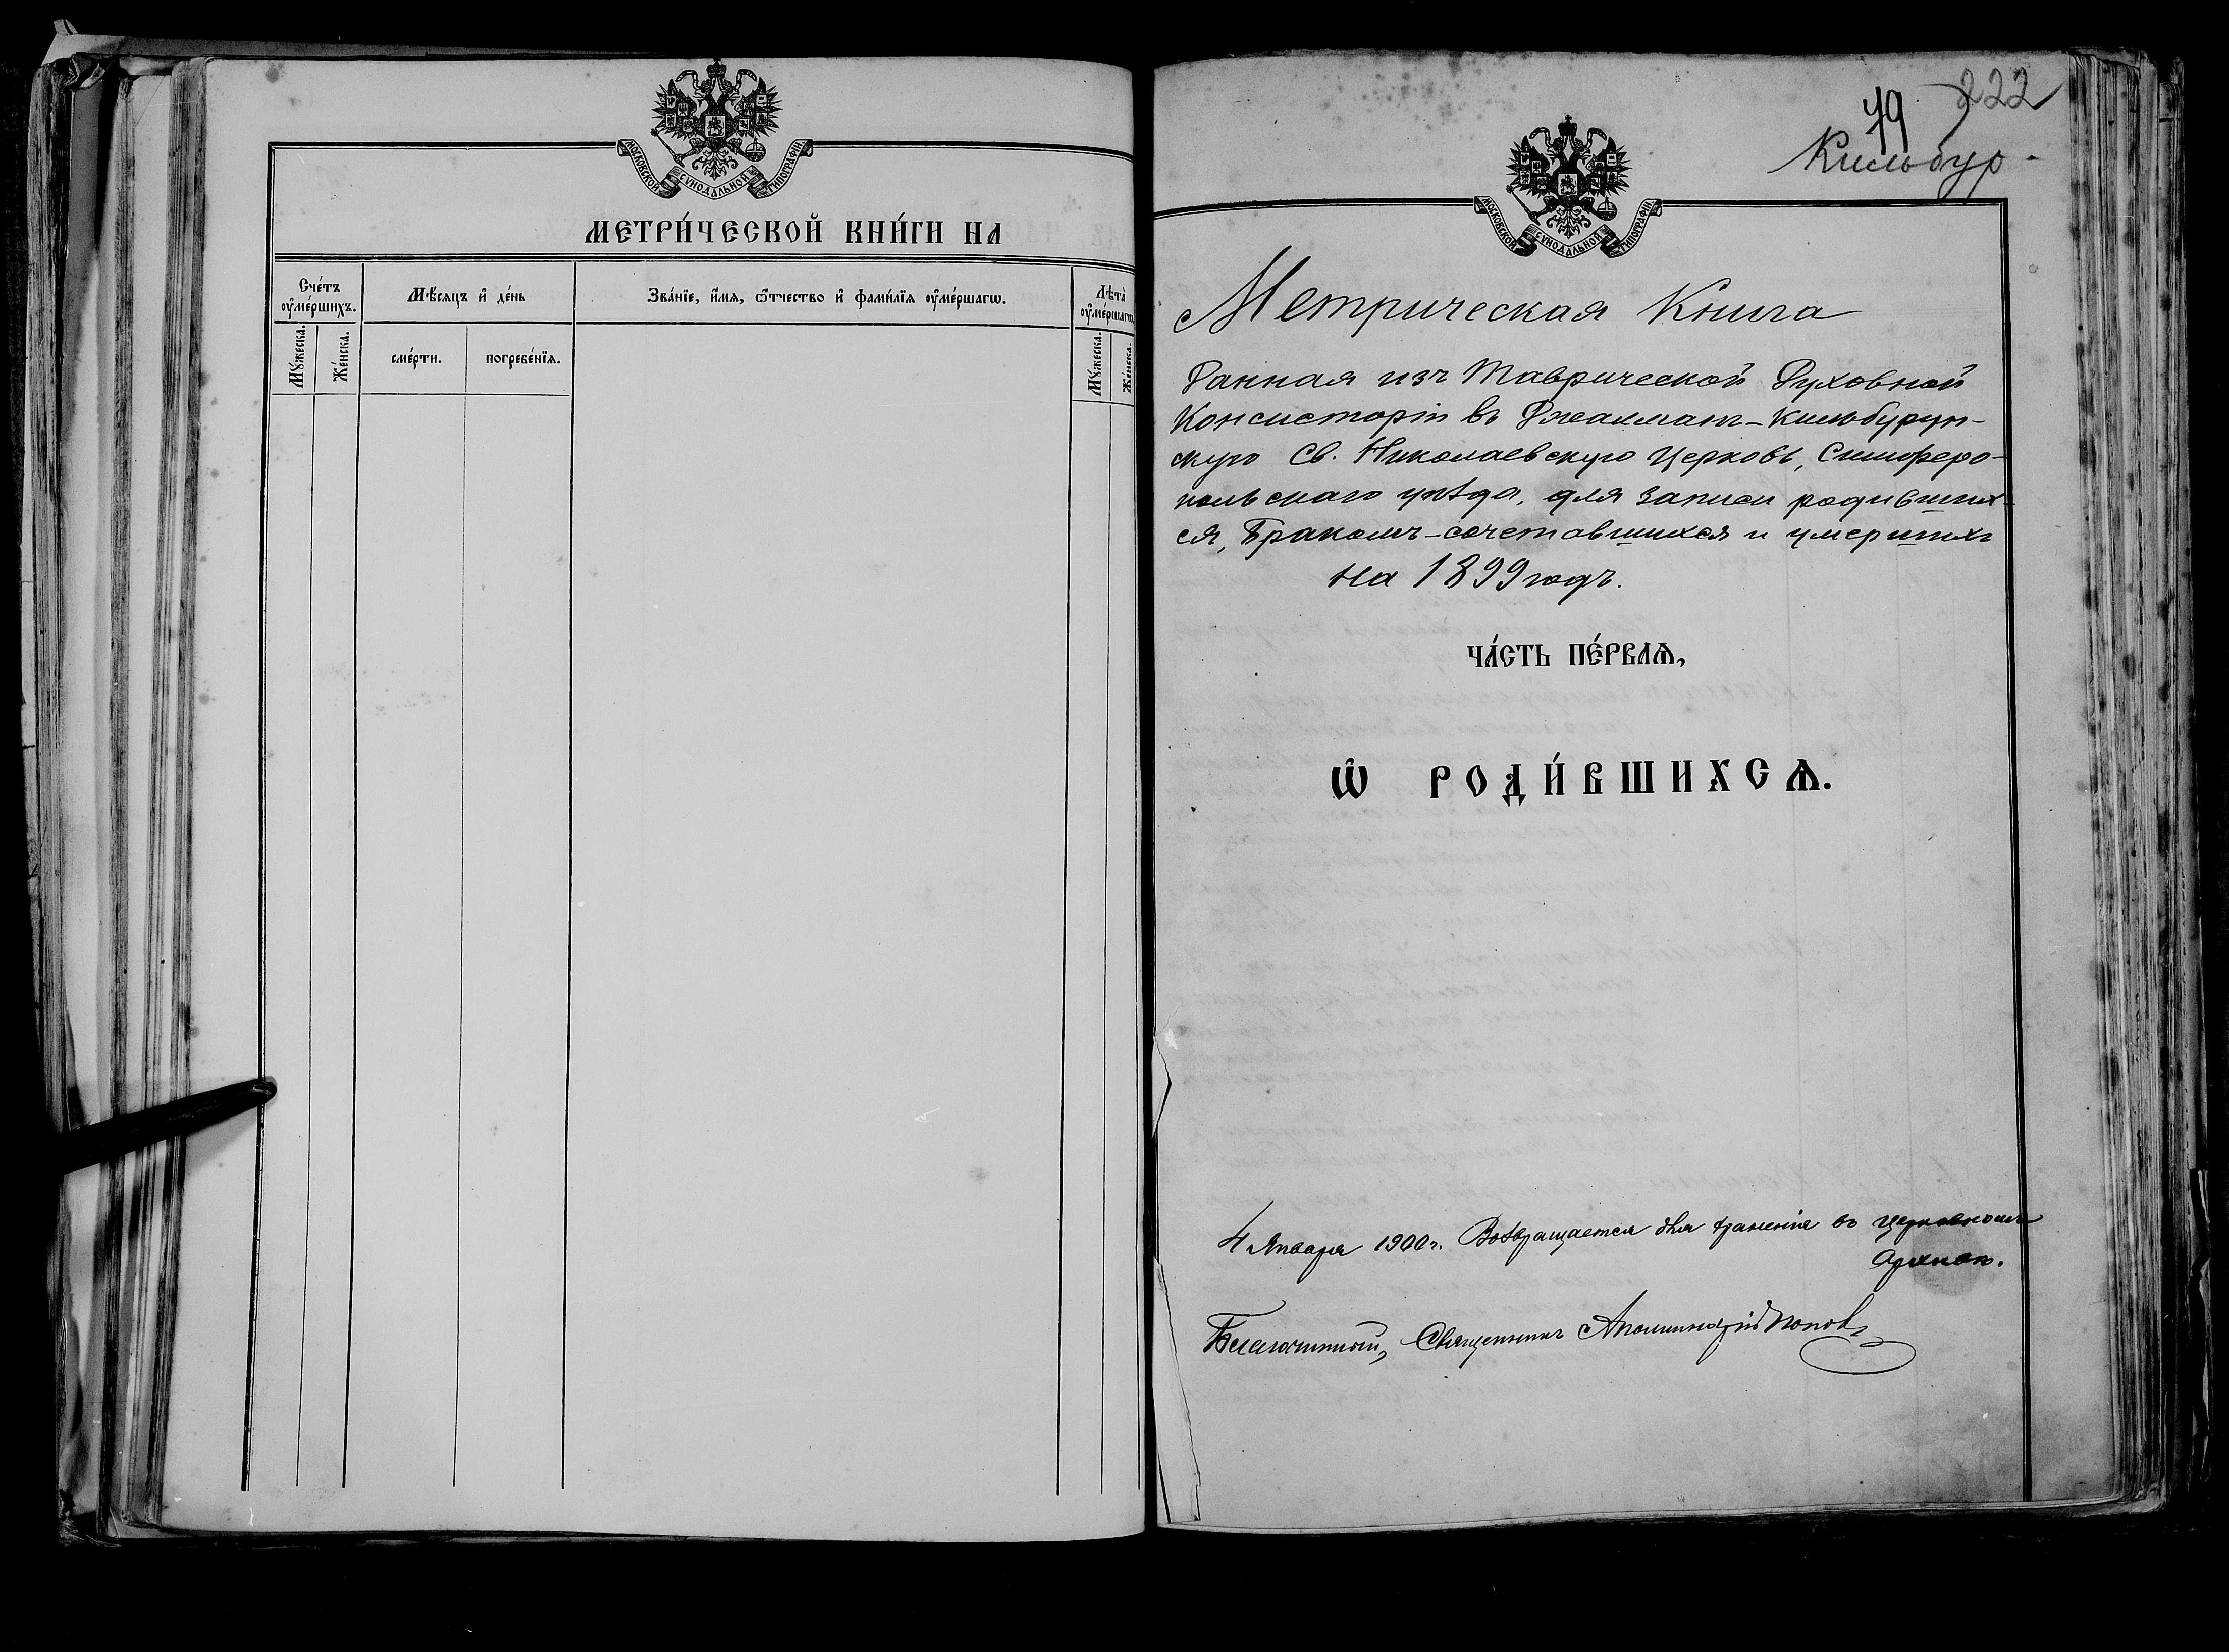 МОСКОВСКОЙ СѴНОДАЛЬНОЙ ТИПОГРАФІИ
МЕТРИ́ЧЕСКОЙ КНИ́ГИ НА
Сче́тъ ᲂу҆ме́ршихъ.
Мꙋ́жеска.
Же́нска.
Мѣ́сяцъ и҆ де́нь
сме́рти.
погребе́нїѧ.
Зва́нїе, и҆́мѧ, ѻ҆́тчество и҆ фами́лїѧ ᲂу҆ме́ршагѡ.
Лѣта̀ ᲂу҆ме́ршагѡ
Мꙋ́жеска.
Же́нска.
222
79
Кильбур-
МОСКОВСКОЙ СѴНОДАЛЬНОЙ ТИПОГРАФІИ
Метрическая Книга
Данная изъ Таврической Духовной
Консисторіи въ Джалман-Кильбурун-
скую Св. Николаевскую Церковь, Симферо-
польскаго уѣзда, для записи родивших-
ся, Бракомъ-сочетавшихся и умершихъ
на 1899 годъ.
ЧА́СТЬ ПЕ́РВАѦ,
Ѡ҆ РОДИ́ВШИХСѦ.
4 Января 1900 г. Возвращается для храненія въ церковномъ
Архивѣ.
Благочинный, Священникъ Аполлинарій Поповъ